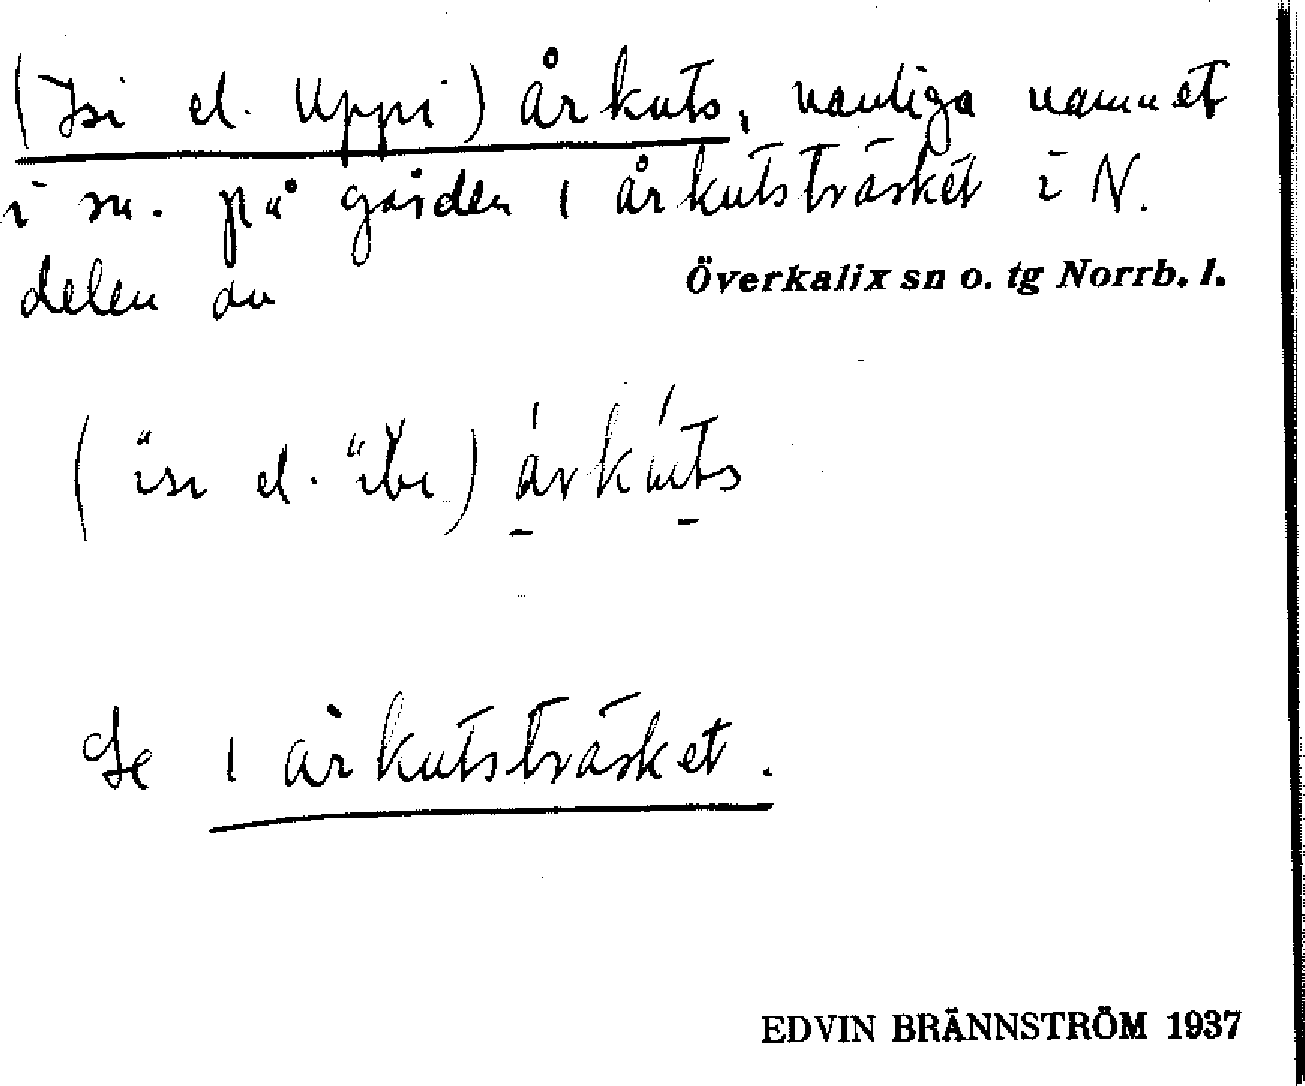 (Isi el. Uppi) Årkuts, vanliga namnet
i sn. på gården 1 Årkutsträsket i N.
delen av Överkalix sn o. tg Norrb. l.
el.
Se 1 Årkutsträsket.
EDVIN BRÄNNSTRÖM 1937